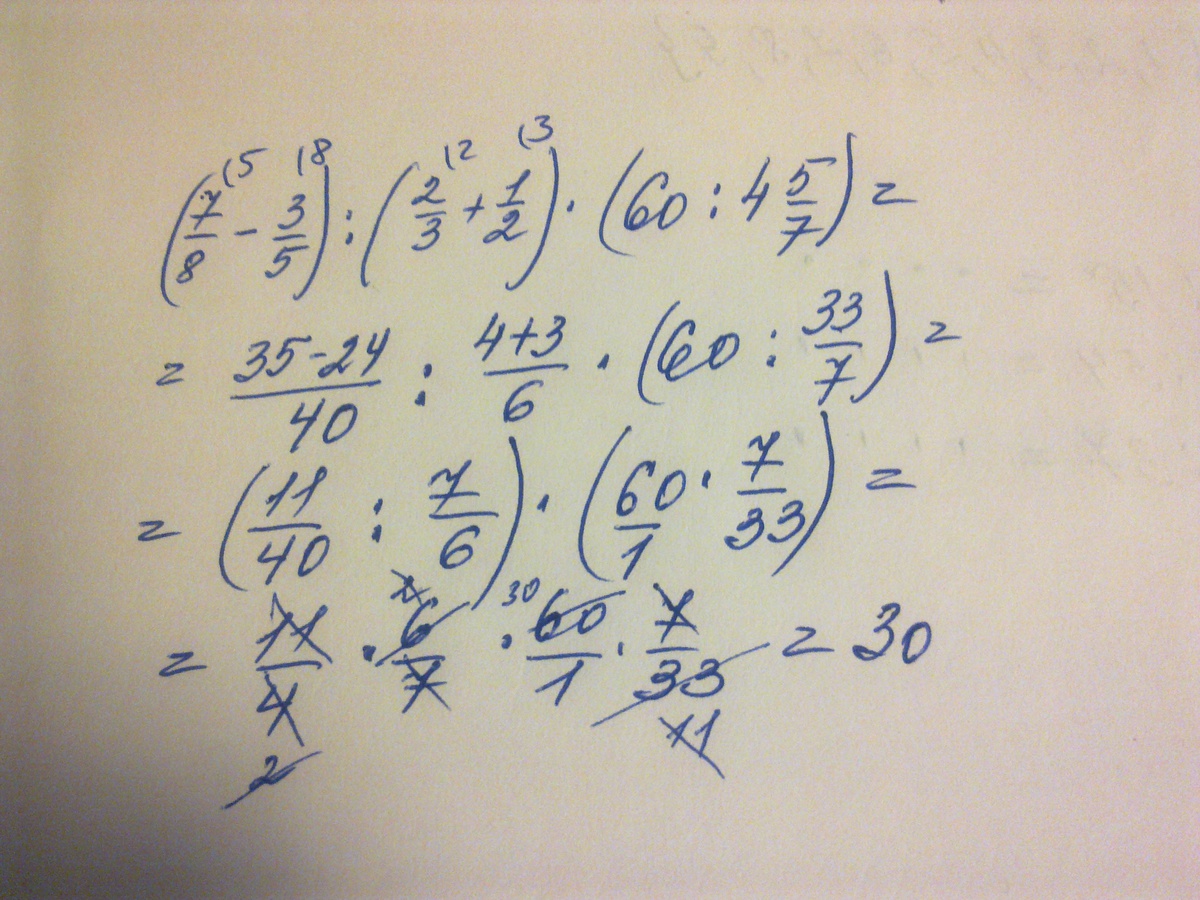 (7/8 (5 - 3/5 (8) : (2/3 (2 + 1/2 (3) · (60 : 4 5/7) =
= 35-24/40 : 4+3/6 · (60 : 33/7) =
= (11/40 : 7/6) · (60/1 · 7/33) =
= 11/4 2 · 2 6/7 · 30 60/1 · 7/33 11 = 30